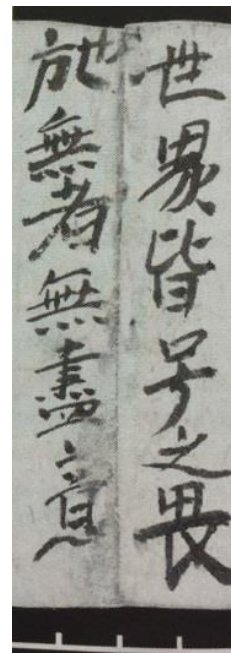 世界皆号之畏
施無者無盡意